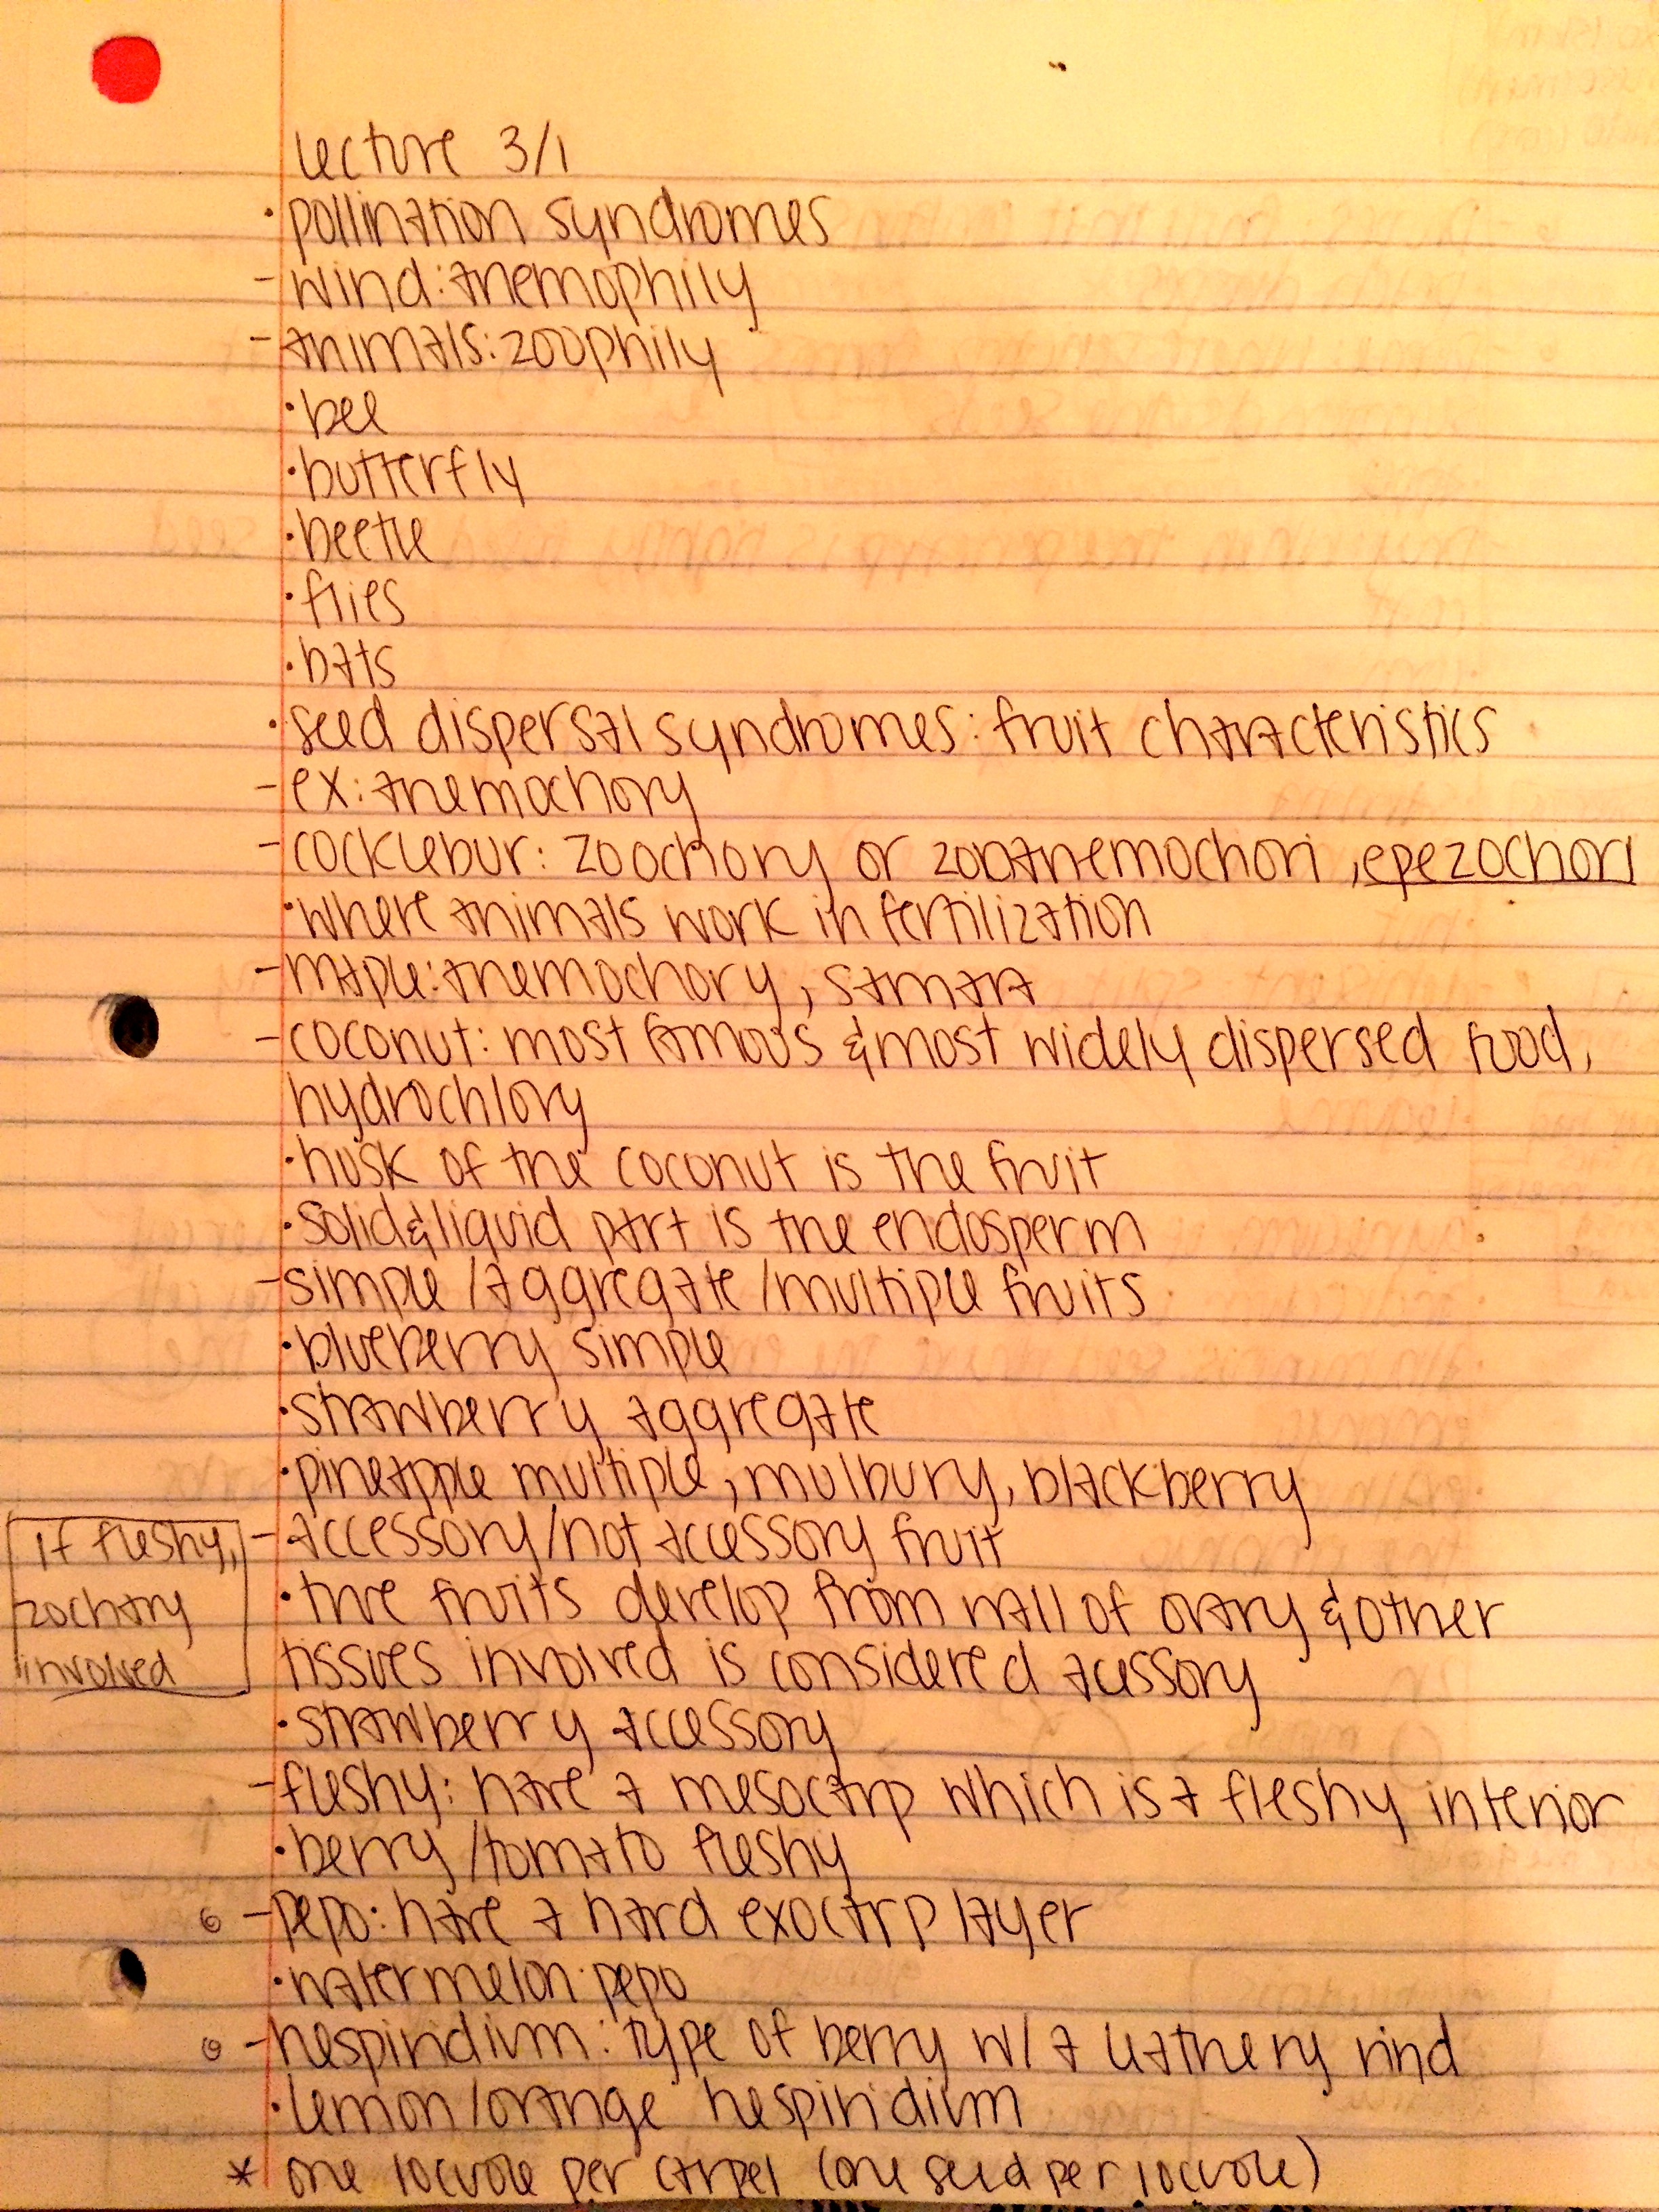 lecture 3/1
• pollination syndromes
- wind: anemophily
- animals: zoophily
• bee
• butterfly
• beetle
• flies
• bats
• seed dispersal syndromes: fruit characteristics
- ex: anemochory
- cocklebur: zoochory or zooanemochori, epezochori
• where animals work in fertilization
- maple: anemochory, samara
- coconut: most famous & most widely dispersed food,
hydrochlory
• husk of the coconut is the fruit
• solid & liquid part is the endosperm
- simple/aggregate/multiple fruits
• blueberry simple
• strawberry aggregate
• pineapple multiple, mulbury, blackberry
- accessory/not accessory fruit
If fleshy,
zochary
involved
• true fruits develop from wall of ovary & other
tissues involved is considered acessory
• strawberry accessory
- fleshy: have a mesocarp which is a fleshy interior
• berry/tomato fleshy
- pepo: have a hard exocarp layer
• watermelon: pepo
- hespiridium: type of berry w/ a leathery rind
• lemon/orange hespiridium
* one locuole per carpel (one seed per locuole)